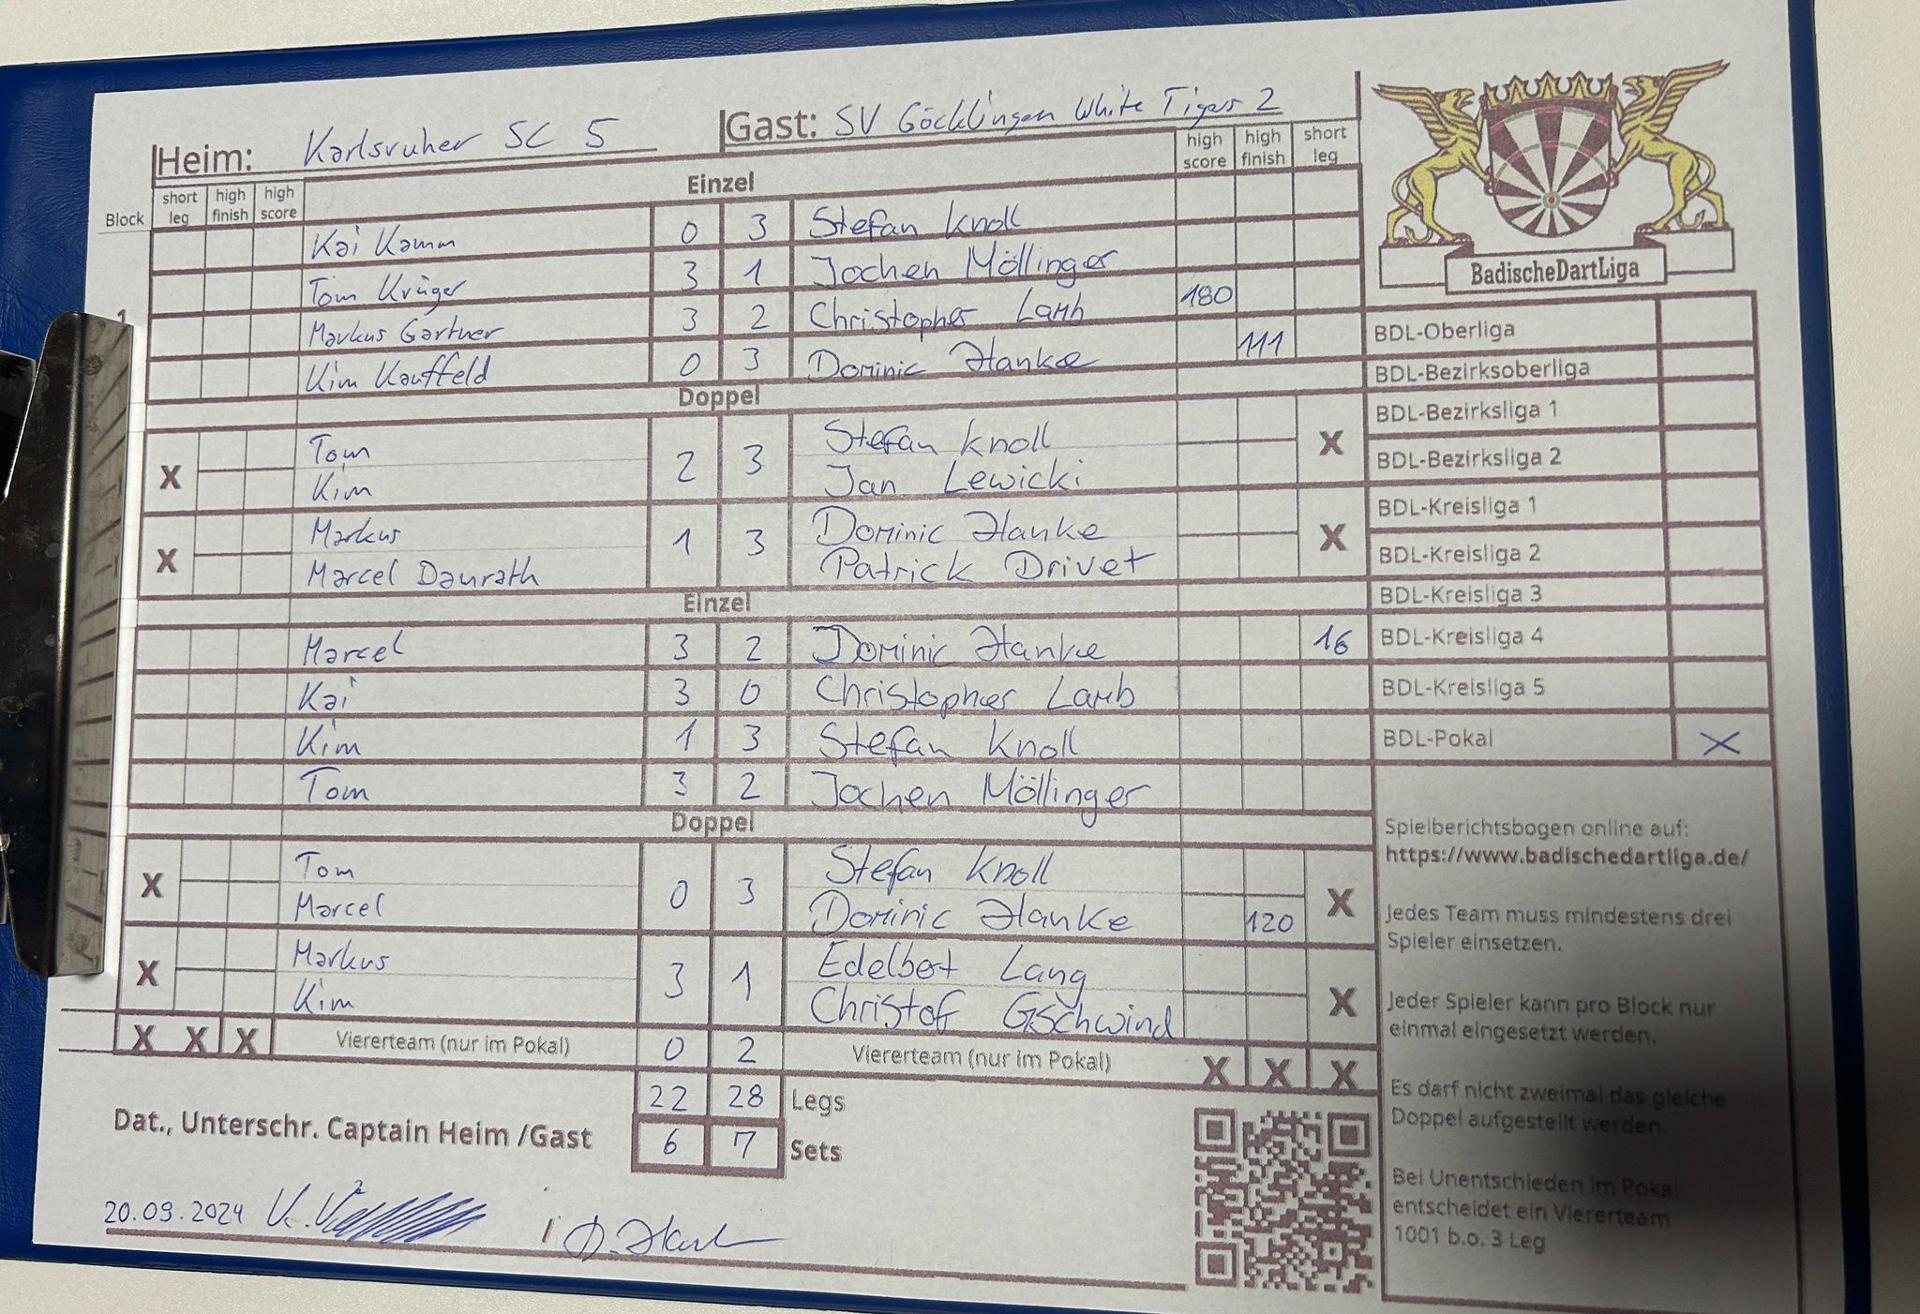 Heim: Karlsruher SC 5 Gast: SV Göcklingen White Tigers 2
Block short leg high finish high score Einzel high score high finish short leg
Kai Kamm 0 3 Stefan Knoll
Tom Krüger 3 1 Jochen Möllinger
1 Markus Gärtner 3 2 Christopher Lamb 180
Kim Kauffeld 0 3 Dominic Hanke 111
Doppel
Tom Stefan Knoll
X 2 3 X
Kim Jan Lewicki
Markus Dominic Hanke
X 1 3 X
Marcel Daurath Patrick Drivet
Einzel
Marcel 3 2 Dominic Hanke 16
Kai 3 0 Christopher Lamb
Kim 1 3 Stefan Knoll
Tom 3 2 Jochen Möllinger
Doppel
Tom Stefan Knoll
X 0 3 X
Marcel Dominic Hanke 120
Markus Edelbert Lang
X 3 1 X
Kim Christof Gschwind
X X X Viererteam (nur im Pokal) 0 2 Viererteam (nur im Pokal) X X X
22 28 Legs
Dat., Unterschr. Captain Heim /Gast 6 7 Sets
20.09.2024
BadischeDartLiga
BDL-Oberliga
BDL-Bezirksoberliga
BDL-Bezirksliga 1
BDL-Bezirksliga 2
BDL-Kreisliga 1
BDL-Kreisliga 2
BDL-Kreisliga 3
BDL-Kreisliga 4
BDL-Kreisliga 5
BDL-Pokal X
Spielberichtsbogen online auf:
https://www.badischedartliga.de/
Jedes Team muss mindestens drei
Spieler einsetzen.
Jeder Spieler kann pro Block nur
einmal eingesetzt werden.
Es darf nicht zweimal das gleiche
Doppel aufgestellt werden.
Bei Unentschieden im Pokal
entscheidet ein Viererteam
1001 b.o. 3 Leg